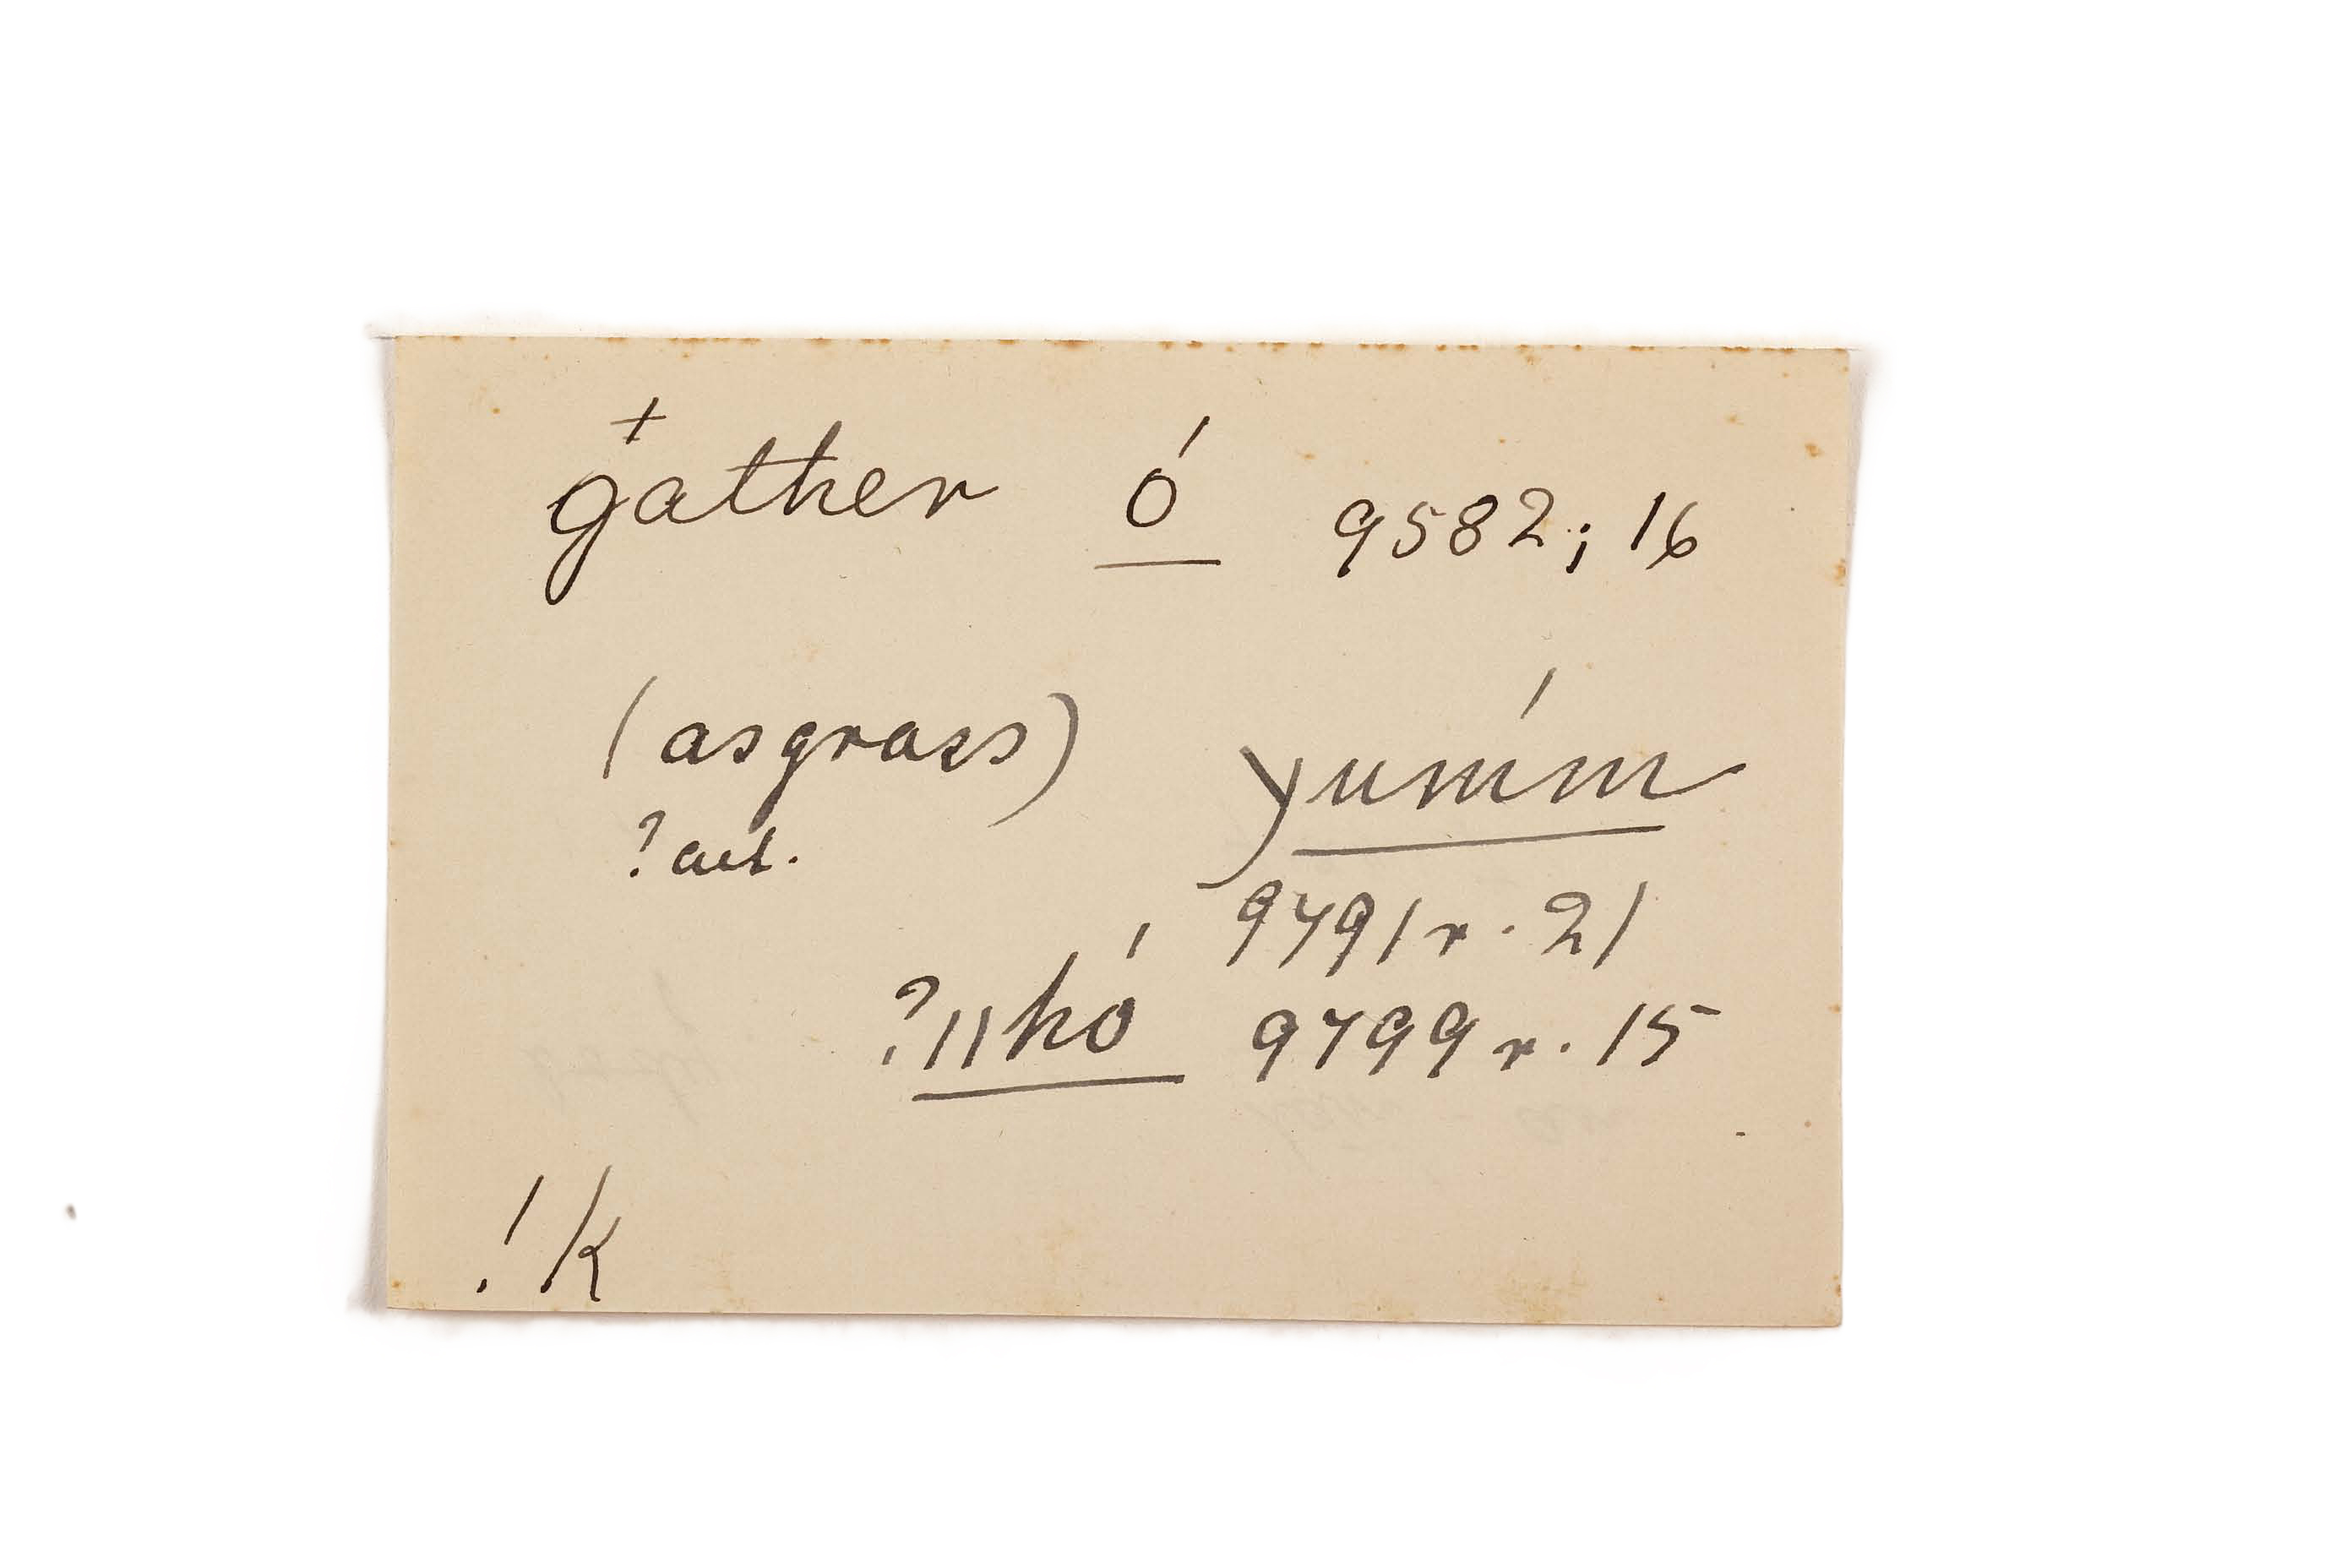 +
gather ó 9582; 16
(as grass) yumḿ
9491 r. 21
?ǁhó 9499 r. 15
!k